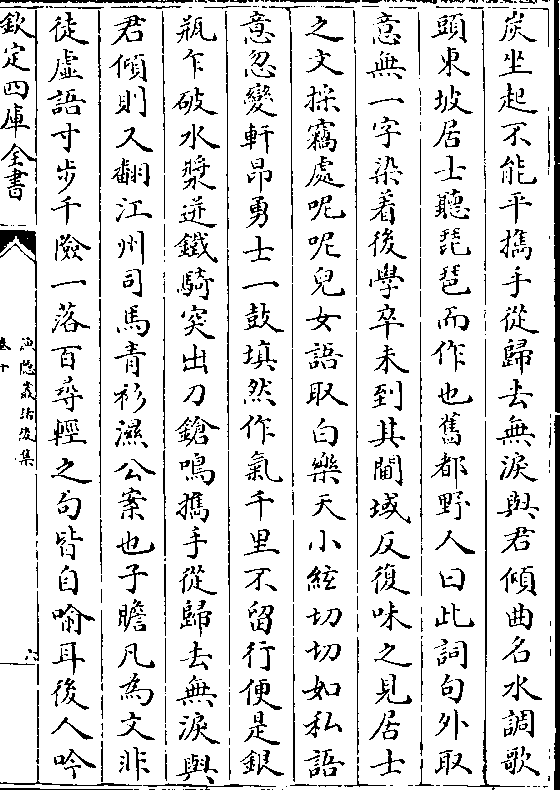 炭坐起不能平擕手從歸去無淚與君傾曲名水調歌
頭東坡居士聽琵琶而作也舊都野人曰此詞句外取
意無一字染着後學卒未到其閫域反復味之見居士
之文採竊處呢呢兒女語取白樂天小絃切切如私語
意忽變軒昂勇士一鼓填然作氣千里不留行便是銀
瓶乍破水漿迸鐵騎突出刀鎗鳴擕手從歸去無淚與
君傾則又翻江州司馬青衫濕公案也子瞻凡為文非
徒虛語寸步千險一落百尋輕之句皆自喻耳後人吟
欽定四庫全書
漁隱叢話後集
卷十
六